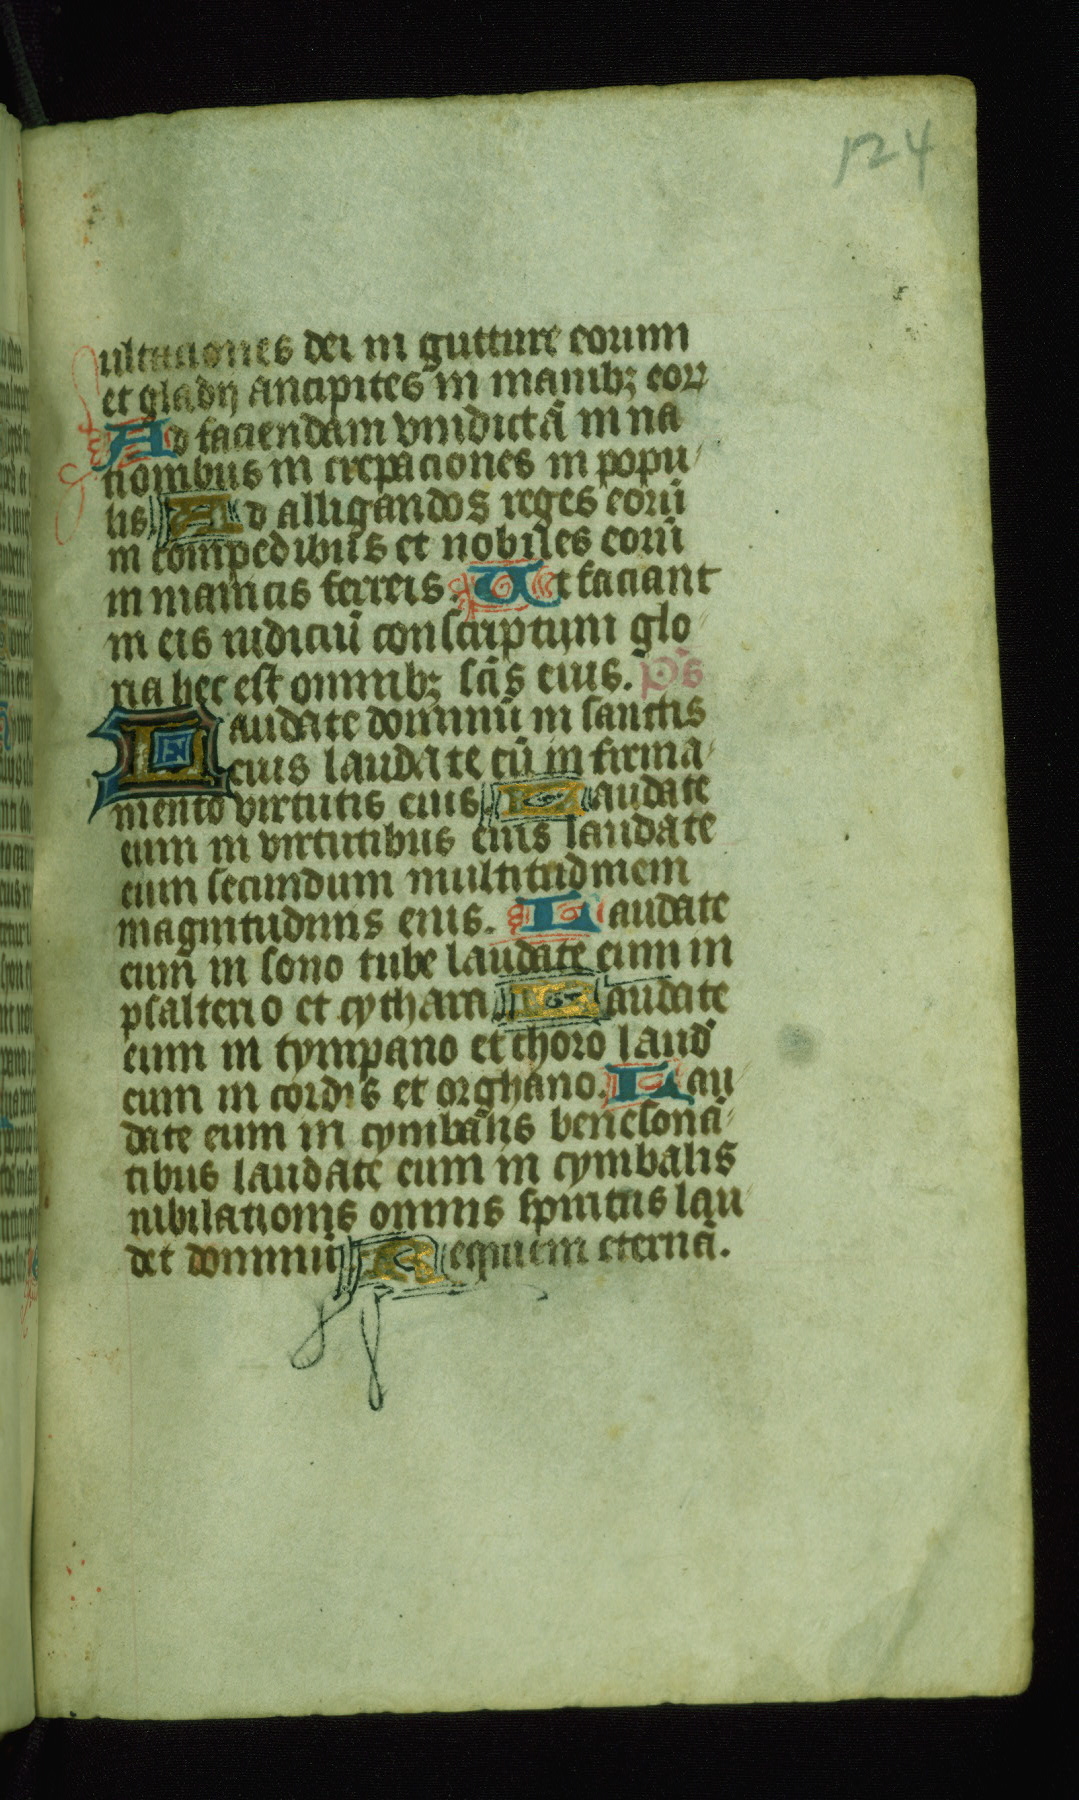 124
ultaciones dei in gutture eorum
et gladij ancipites in manibꝫ eoꝝ
Ad faciendam vindictã in na
tionibus in crepaciones in popu
lis Ad alligandos reges eorũ
in compedibus et nobiles eorũ
in manicis ferreis. Ut faciant
in eis iudiciũ conscriptum glo
ria hec est omnibꝫ scĩs eius. ps̃
Laudate dominũ in sanctis
eius laudate eũ in firma
mento virtutis eius Laudate
eum in virtutibus eius laudate
eum secundum multitudinem
magnitudinis eius. Laudate
eum in sono tube laudate eum in
psalterio et cythara Laudate
eum in tympano et choro laud̃
eum in cordis et orghano. Lau
date eum in cymbalis benesonã
tibus laudate eum in cymbalis
iubilationis omnis spiritus lau
det dominũ Requiem eternã.